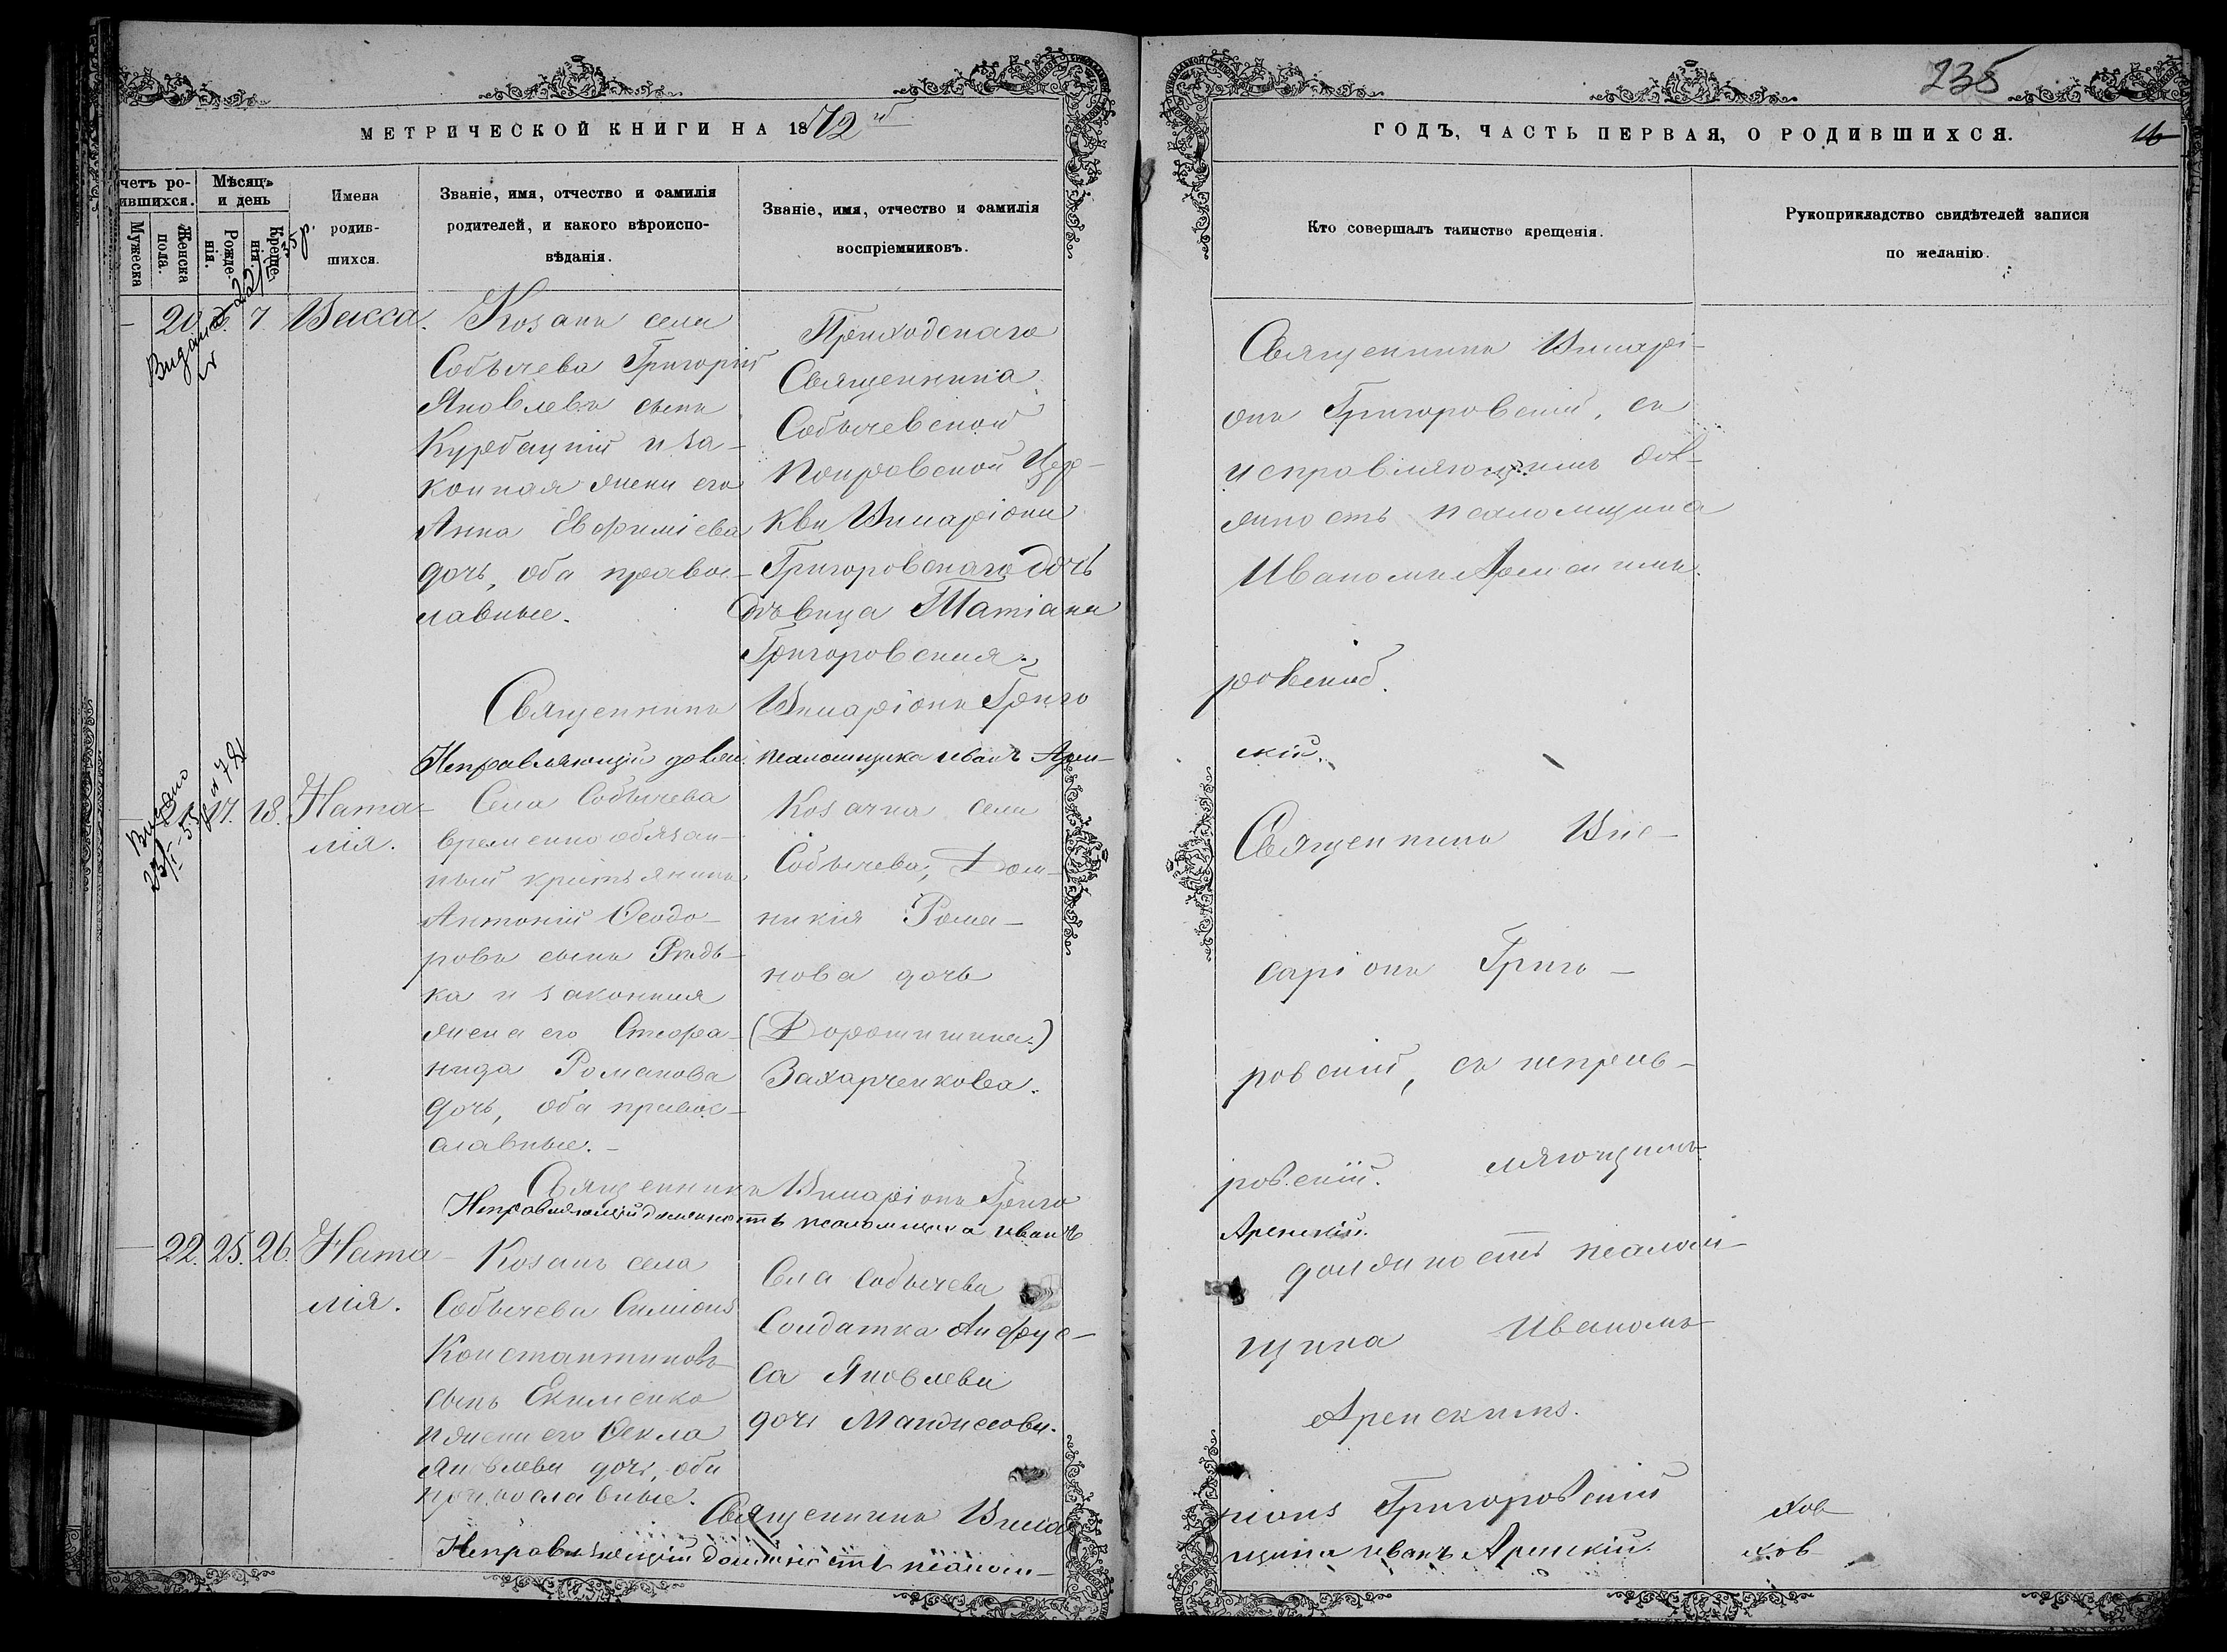 235
МЕТРИЧЕСКОЙ КНИГИ НА 1872й
ГОДЪ, ЧАСТЬ ПЕРВАЯ, О РОДИВШИХСЯ.
16
четъ ро-
ившихся.
Мужеска
Женска
пола.
Мѣсяцъ
и день
Рожде-
нія.
Креще-
нія.
Имена
родив-
шихся.
Званіе, имя, отчество и фамилія
родителей, и какого вѣроиспо-
вѣданія.
Званіе, имя, отчество и фамилія
воспріемниковъ.
Кто совершалъ таинство крещенія.
Рукоприкладство свидѣтелей записи
по желанію.
20. 7. Васса.
Козакъ села
Собычева Григорій
Яковлевъ сынъ
Курбацкій и за-
конная жена его
Анна Евфиміева
дочь, оба право-
славные.
Приходскаго
Священника
Собычевской
Покровской Цер-
кви Иларіона
Григоровскаго дочь
дѣвица Татіана
Григоровская.
Священникъ Илларі-
онъ Григоровскій, съ
исправляющимъ дол-
жность псаломщика
Иваномъ Аренскимъ.
Священникъ Иларіонъ Григо
ровскій.
Исправляющій должн. псаломщика Иванъ Арен-
скій.
Видано
21. 17. 18. Ната-
лія.
Села Собычева
временно обязан-
ный крестьянинъ
Антоній Ѳеодо-
ровъ сынъ Редь-
ка и законная
жена его Стефа-
нида Романова
дочь, оба право-
славные.
Козачка села
Собычева, Дом-
никія Рома-
нова дочь
Захарченкова.
Священникъ Ил-
ларіонъ Григо-
ровскій, съ исправ-
ляющимъ
должность псалом-
щика Иваномъ
Аренскимъ.
Священникъ Иларіонъ Григо
ровскій.
Исправляющій должность псаломщика Иванъ
Аренскій.
22. 25. 26. Ната-
лія.
Козакъ села
Собычева Симіонъ
Константиновъ
сынъ Екименко
и жена его Ѳекла
Яковлева дочь, оба
православные.
Села Собычева
Солдатка Анфус-
са Яковлева
дочь
Священникъ Илла
ріонъ Григоровскій
Исправляющій должность псалом-
щика Иванъ Аренскій.